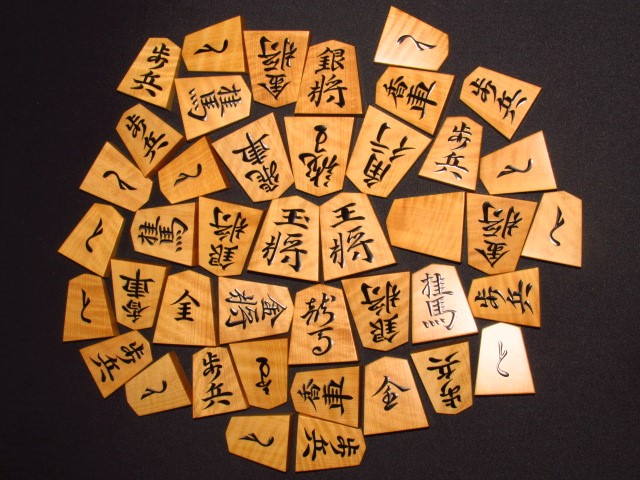 歩兵
と
金将
銀将
と
桂馬
香車
歩兵
歩兵
飛車
角行
歩兵
と
と
と
と
桂馬
銀将
玉将
王将
金将
と
と
香車
全
金将
銀将
桂馬
歩兵
歩兵
と
歩兵
香車
全
歩兵
と
と
歩兵